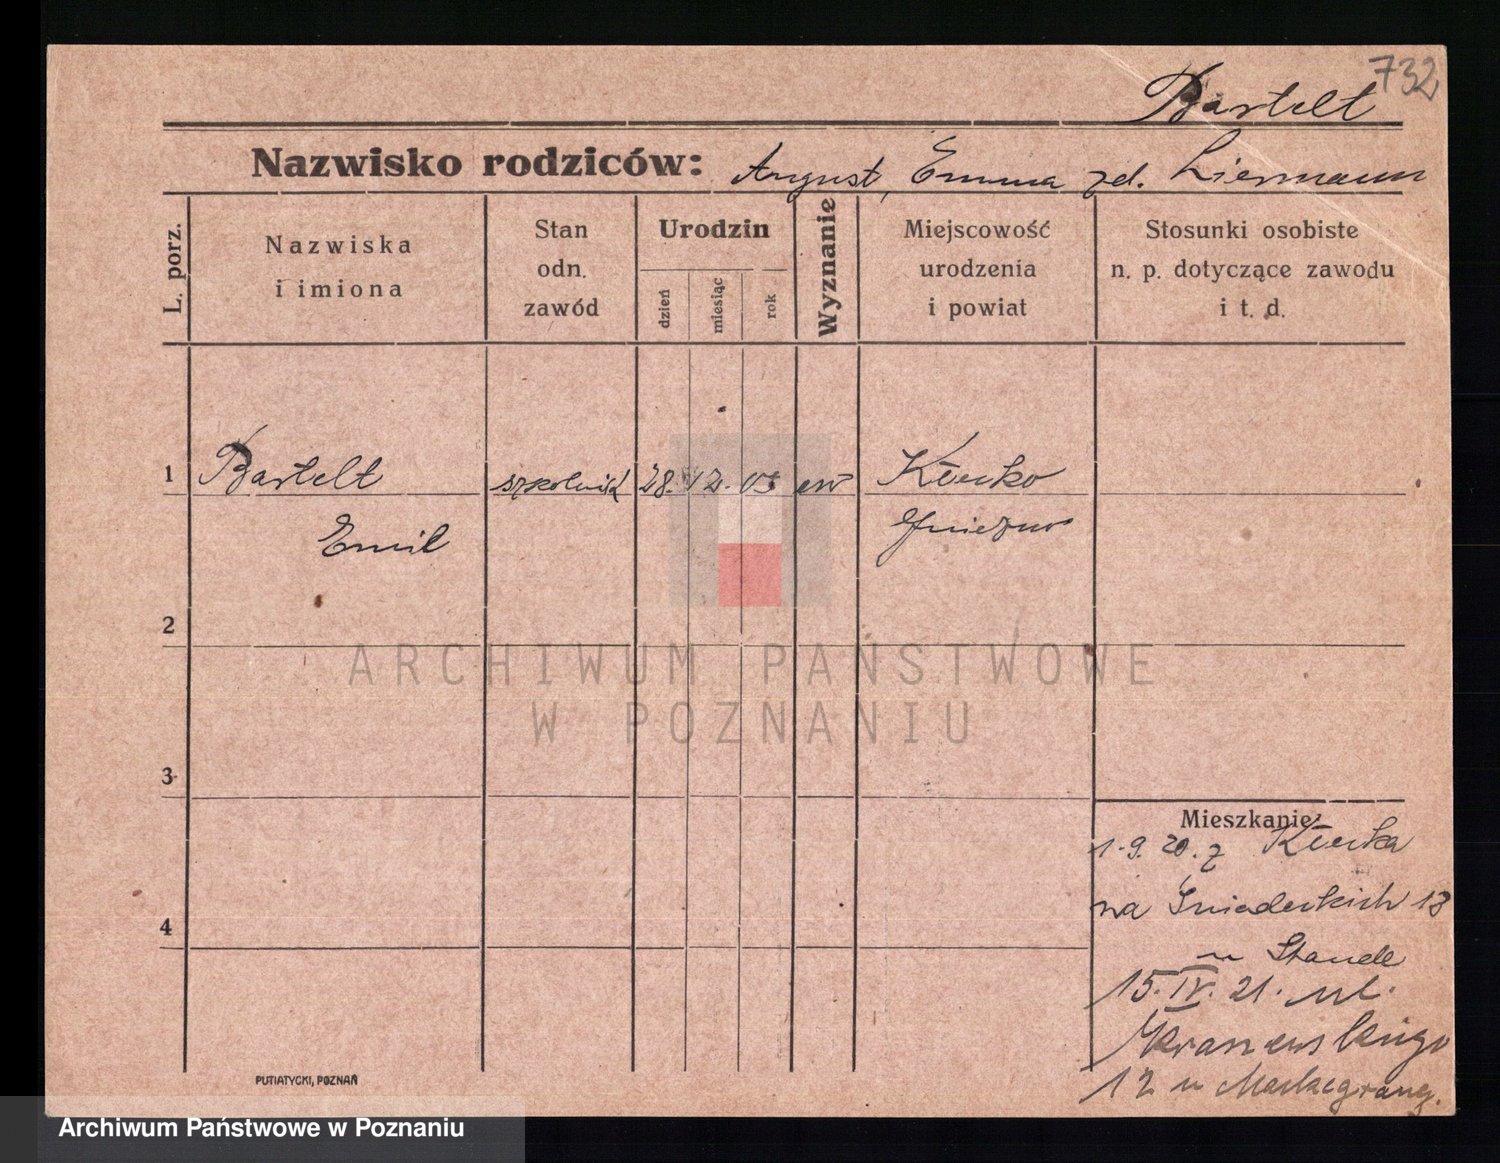 732
Bartelt
Nazwisko rodziców: August, Emma zd. Liermann
L. porz.
Nazwiska
i imiona
Stan
odn.
zawód
Urodzin
dzień
miesiąc
rok
Wyznanie
Miejscowość
urodzenia
i powiat
Stosunki osobiste
n. p. dotyczące zawodu
i t. d.
1 Bartelt szkolnik 28. 12. 05 ew Kłecko
Emil Gniezno
2
ARCHIWUM PAŃSTWOWE
W POZNANIU
3
Mieszkanie:
1.9.20. z Kłecka
na Śniadeckich 13
u Staude
4
15.IV.21. ul.
Kraszewskiego
12 u
PUTIATYCKI, POZNAŃ
Archiwum Państwowe w Poznaniu